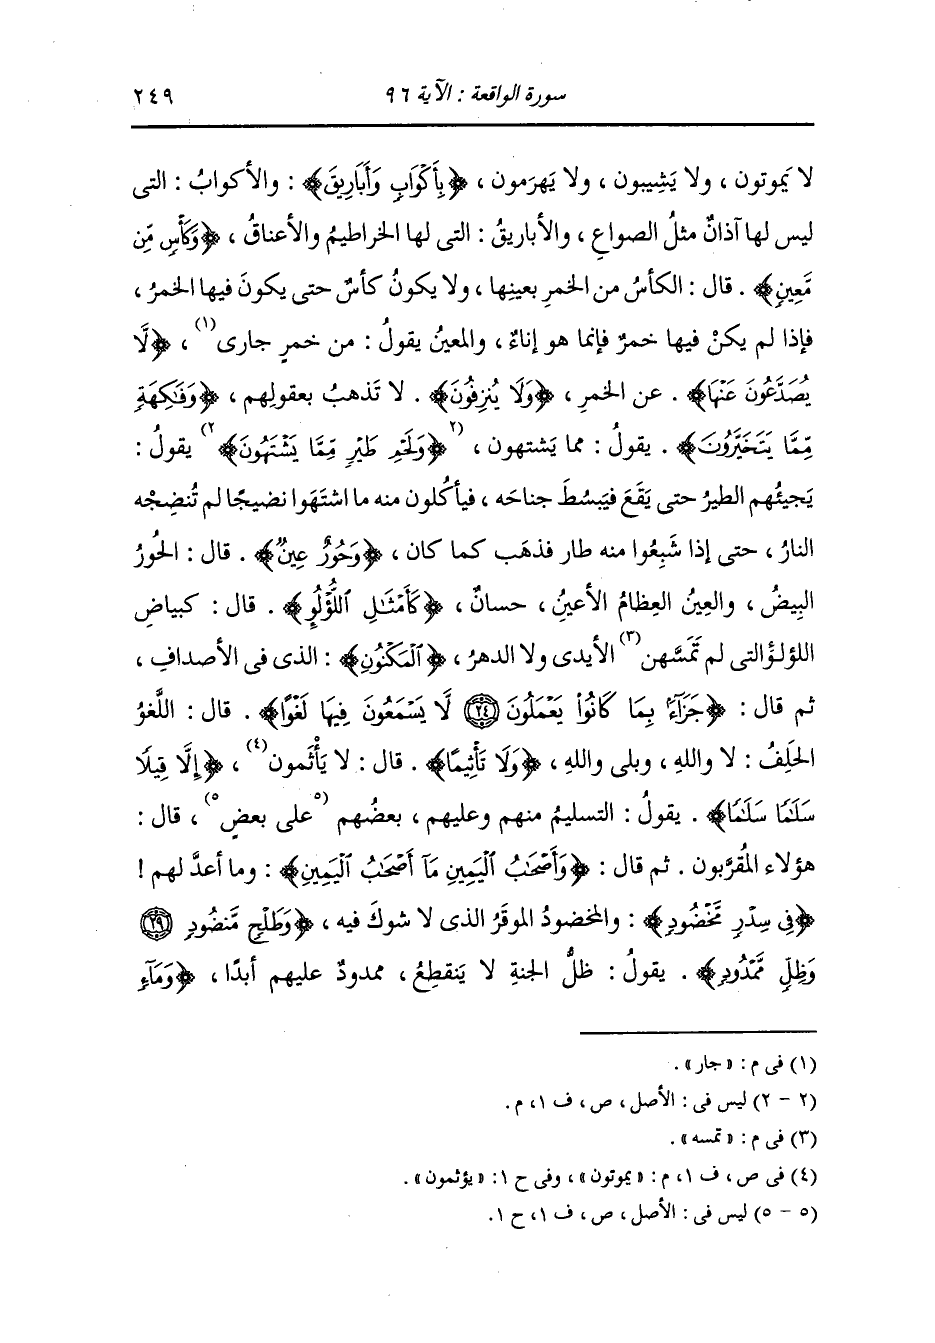 سورة الواقعة : الآية ٩٦
٢٤٩
لا يَموتون ، ولا يَشِيبون ، ولا يهرَمون ، ﴿بِأَكْوَابٍ وَأَبَارِيقَ﴾ : والأكوابُ : التى
ليس لها آذانٌ مثلُ الصواعِ ، والأباريقُ : التى لها الخراطيمُ والأعناقُ ، ﴿وَكَأْسٍ مِّن
مَّعِينٍ﴾ . قال : الكأسُ من الخمرِ بعينِها ، ولا يكونُ كأسٌ حتى يكونَ فيها الخمرُ ،
فإذا لم يكنْ فيها خمرٌ فإنما هو إناءٌ ، والمعينُ يقولُ : من خمرٍ جارى(١) ، ﴿لَّا
يُصَدَّعُونَ عَنْهَا﴾ . عن الخمرِ ، ﴿وَلَا يُنزِفُونَ﴾ . لا تَذهبُ بعقولِهم ، ﴿وَفَاكِهَةٍ
مِّمَّا يَتَخَيَّرُونَ﴾ . يقولُ : مما يَشتهون ، (٢﴿وَلَحْمِ طَيْرٍ مِّمَّا يَشْتَهُونَ﴾٢) يقولُ :
يَجيئُهم الطيرُ حتى يَقَعَ فيَبسُطَ جناحَه ، فيأكُلون منه ما اشتَهَوا نضيجًا لم تُنضِجْه
النارُ ، حتى إذا شَبِعُوا منه طار فذهَب كما كان ، ﴿وَحُورٌ عِينٌ﴾ . قال : الحُورُ
البِيضُ ، والعِينُ العِظامُ الأعينِ ، حسانٌ ، ﴿كَأَمْثَالِ اللُّؤْلُؤِ﴾ . قال : كبياضِ
اللؤلؤ التى لم تَمَسَّهن(٣) الأيدى ولا الدهرُ ، ﴿الْمَكْنُونِ﴾ : الذى فى الأصدافِ ،
ثم قال : ﴿جَزَاءً بِمَا كَانُوا يَعْمَلُونَ ٢٤ لَا يَسْمَعُونَ فِيهَا لَغْوًا﴾ . قال : اللَّغوُ
الحَلِفُ : لا واللهِ ، وبلى واللهِ ، ﴿وَلَا تَأْثِيمًا﴾ . قال : لا يَأْثَمون(٤) ، ﴿إِلَّا قِيلًا
سَلَامًا سَلَامًا﴾ . يقولُ : التسليمُ منهم وعليهم ، بعضُهم (٥على بعضٍ٥) ، قال :
هؤلاء المُقرَّبون . ثم قال : ﴿وَأَصْحَابُ الْيَمِينِ مَا أَصْحَابُ الْيَمِينِ﴾ : وما أعدَّ لهم !
﴿فِى سِدْرٍ مَّخْضُودٍ﴾ : والمخضودُ الموقَرُ الذى لا شوكَ فيه ، ﴿وَطَلْحٍ مَّنضُودٍ ٢٩
وَظِلٍّ مَّمْدُودٍ﴾ . يقولُ : ظلُّ الجنةِ لا يَنقطِعُ ، ممدودٌ عليهم أبدًا ، ﴿وَمَاءٍ
(١) فى م : «جار» .
(٢ - ٢) ليس فى : الأصل ، ص ، ف ١، م .
(٣) فى م : «تمسه» .
(٤) فى ص ، ف ١، م : «يموتون» ، وفى ح ١: «يؤثمون» .
(٥ - ٥) ليس فى : الأصل ، ص ، ف ١، ح ١.